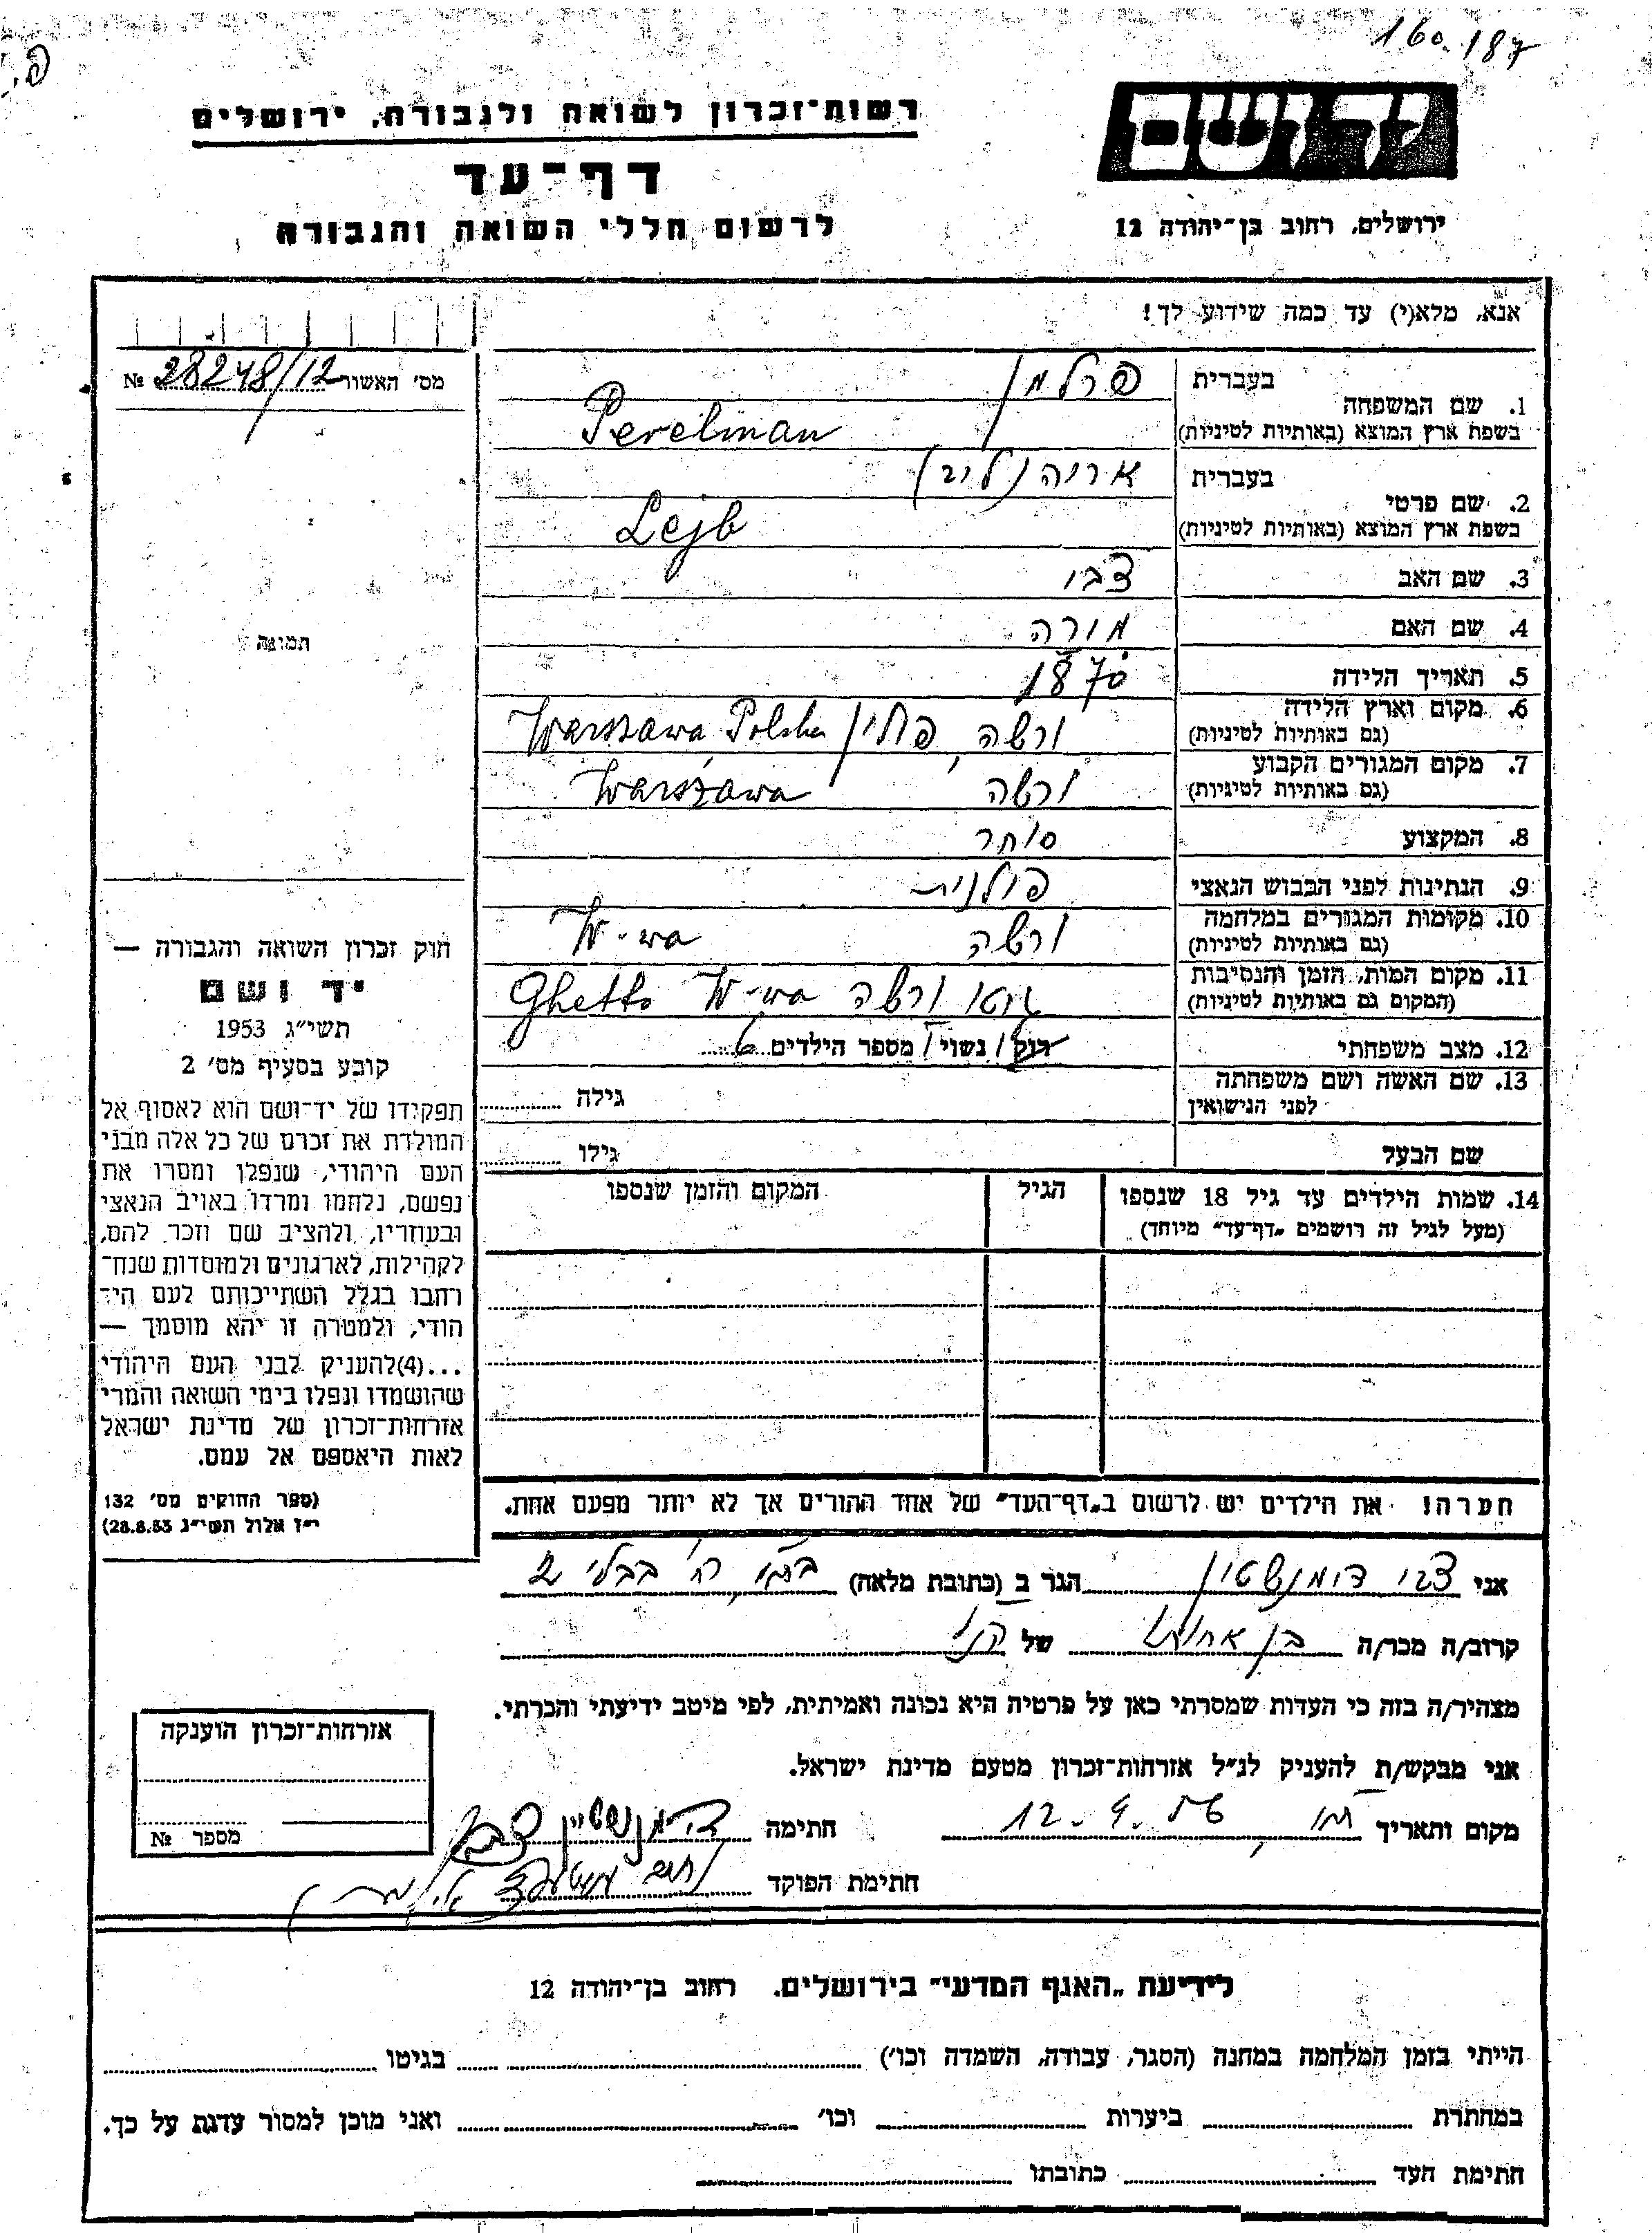 160.187
פ.
יד ושם
רשות־זכרון לשואה ולגבורה, ירושלים
דף־עד
לרשום חללי השואה והגבורה
ירושלים, רחוב בן־יהודה 12
אנא, מלא(י) עד כמה שידוע לך!
מס׳ האשור 28248/12 №
1. שם המשפחה
בעברית פרלמן
בשפת ארץ המוצא (באותיות לטיניות) Perelman
2. שם פרטי
בעברית אריה (ליב)
בשפת ארץ המוצא (באותיות לטיניות) Lejb
3. שם האב צבי
4. שם האם
5. תאריך הלידה 1870
6. מקום וארץ הלידה
(גם באותיות לטיניות) ורשה, פולין Warszawa, Polska
7. מקום המגורים הקבוע
(גם באותיות לטיניות) ורשה Warszawa
8. המקצוע סוחר
9. הנתינות לפני הכבוש הנאצי פולנית
10. מקומות המגורים במלחמה
(גם באותיות לטיניות) ורשה W-wa
11. מקום המות, הזמן והנסיבות
(המקום גם באותיות לטיניות) גטו ורשה Ghetto W-wa
12. מצב משפחתי רוק / נשוי / מספר הילדים 6
13. שם האשה ושם משפחתה
לפני הנישואין גילה
שם הבעל גילו
14. שמות הילדים עד גיל 18 שנספו הגיל המקום והזמן שנספו
(מעל לגיל זה רושמים „דף־עד״ מיוחד)
הערה! את הילדים יש לרשום ב„דף־העד״ של אחד ההורים אך לא יותר מפעם אחת.
תמונה
חוק זכרון השואה והגבורה —
יד ושם
תשי״ג 1953
קובע בסעיף מס׳ 2
תפקידו של יד־ושם הוא לאסוף אל
המולדת את זכרם של כל אלה מבני
העם היהודי, שנפלו ומסרו את
נפשם, נלחמו ומרדו באויב הנאצי
ובעוזריו, ולהציב שם וזכר להם,
לקהילות, לארגונים ולמוסדות שנח־
רהבו בגלל השתייכותם לעם הי־
הודי, ולמטרה זו יהא מוסמך —
...(4) להעניק לבני העם היהודי
שהושמדו ונפלו בימי השואה והמרי
אזרחות־זכרון של מדינת ישראל
לאות היאספם אל עמם.
(ספר החוקים מס׳ 132
י״ז אלול תשי״ג 28.8.53)
אני צבי דימנשטין הגר ב (כתובת מלאה) רח׳ בבלי 2
קרוב/ה מכר/ה בן אחותו של הנ״ל
מצהיר/ה בזה כי העדות שמסרתי כאן על פרטיה היא נכונה ואמיתית, לפי מיטב ידיעתי והכרתי.
אני מבקש/ת להעניק לנ״ל אזרחות־זכרון מטעם מדינת ישראל.
מקום ותאריך 12.9.56 חתימה דימנשטיין צבי
חתימת הפוקד
אזרחות־זכרון הוענקה
מספר №
לידיעת „האגף המדעי״ בירושלים. רחוב בן־יהודה 12
הייתי בזמן המלחמה במחנה (הסגר, עבודה, השמדה וכו׳) בגיטו
במחתרת ביערות וכו׳ ואני מוכן למסור עדות על כך.
חתימת העד כתובתו